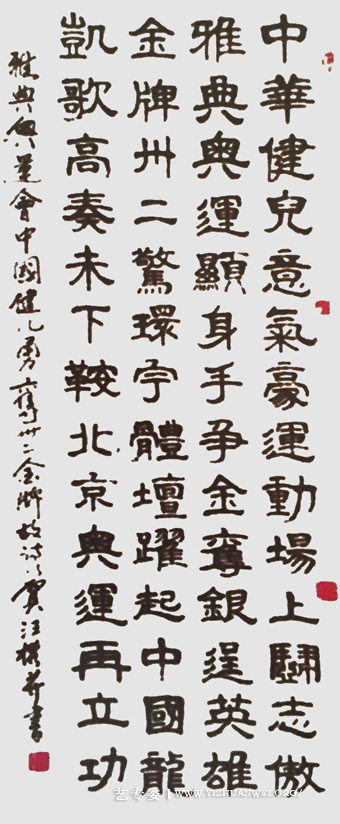 中華健兒意氣豪運動場上鬪志傲
雅典奥運顯身手争金奪銀逞英雄
金牌卅二驚環宇體壇躍起中國龍
凱歌高奏未下鞍北京奥運再立功
雅典奥運會中國健儿勇奪卅二金牌故詩以賀汪并書
艺专委 WWW.YIZHUANWEI.ORG/